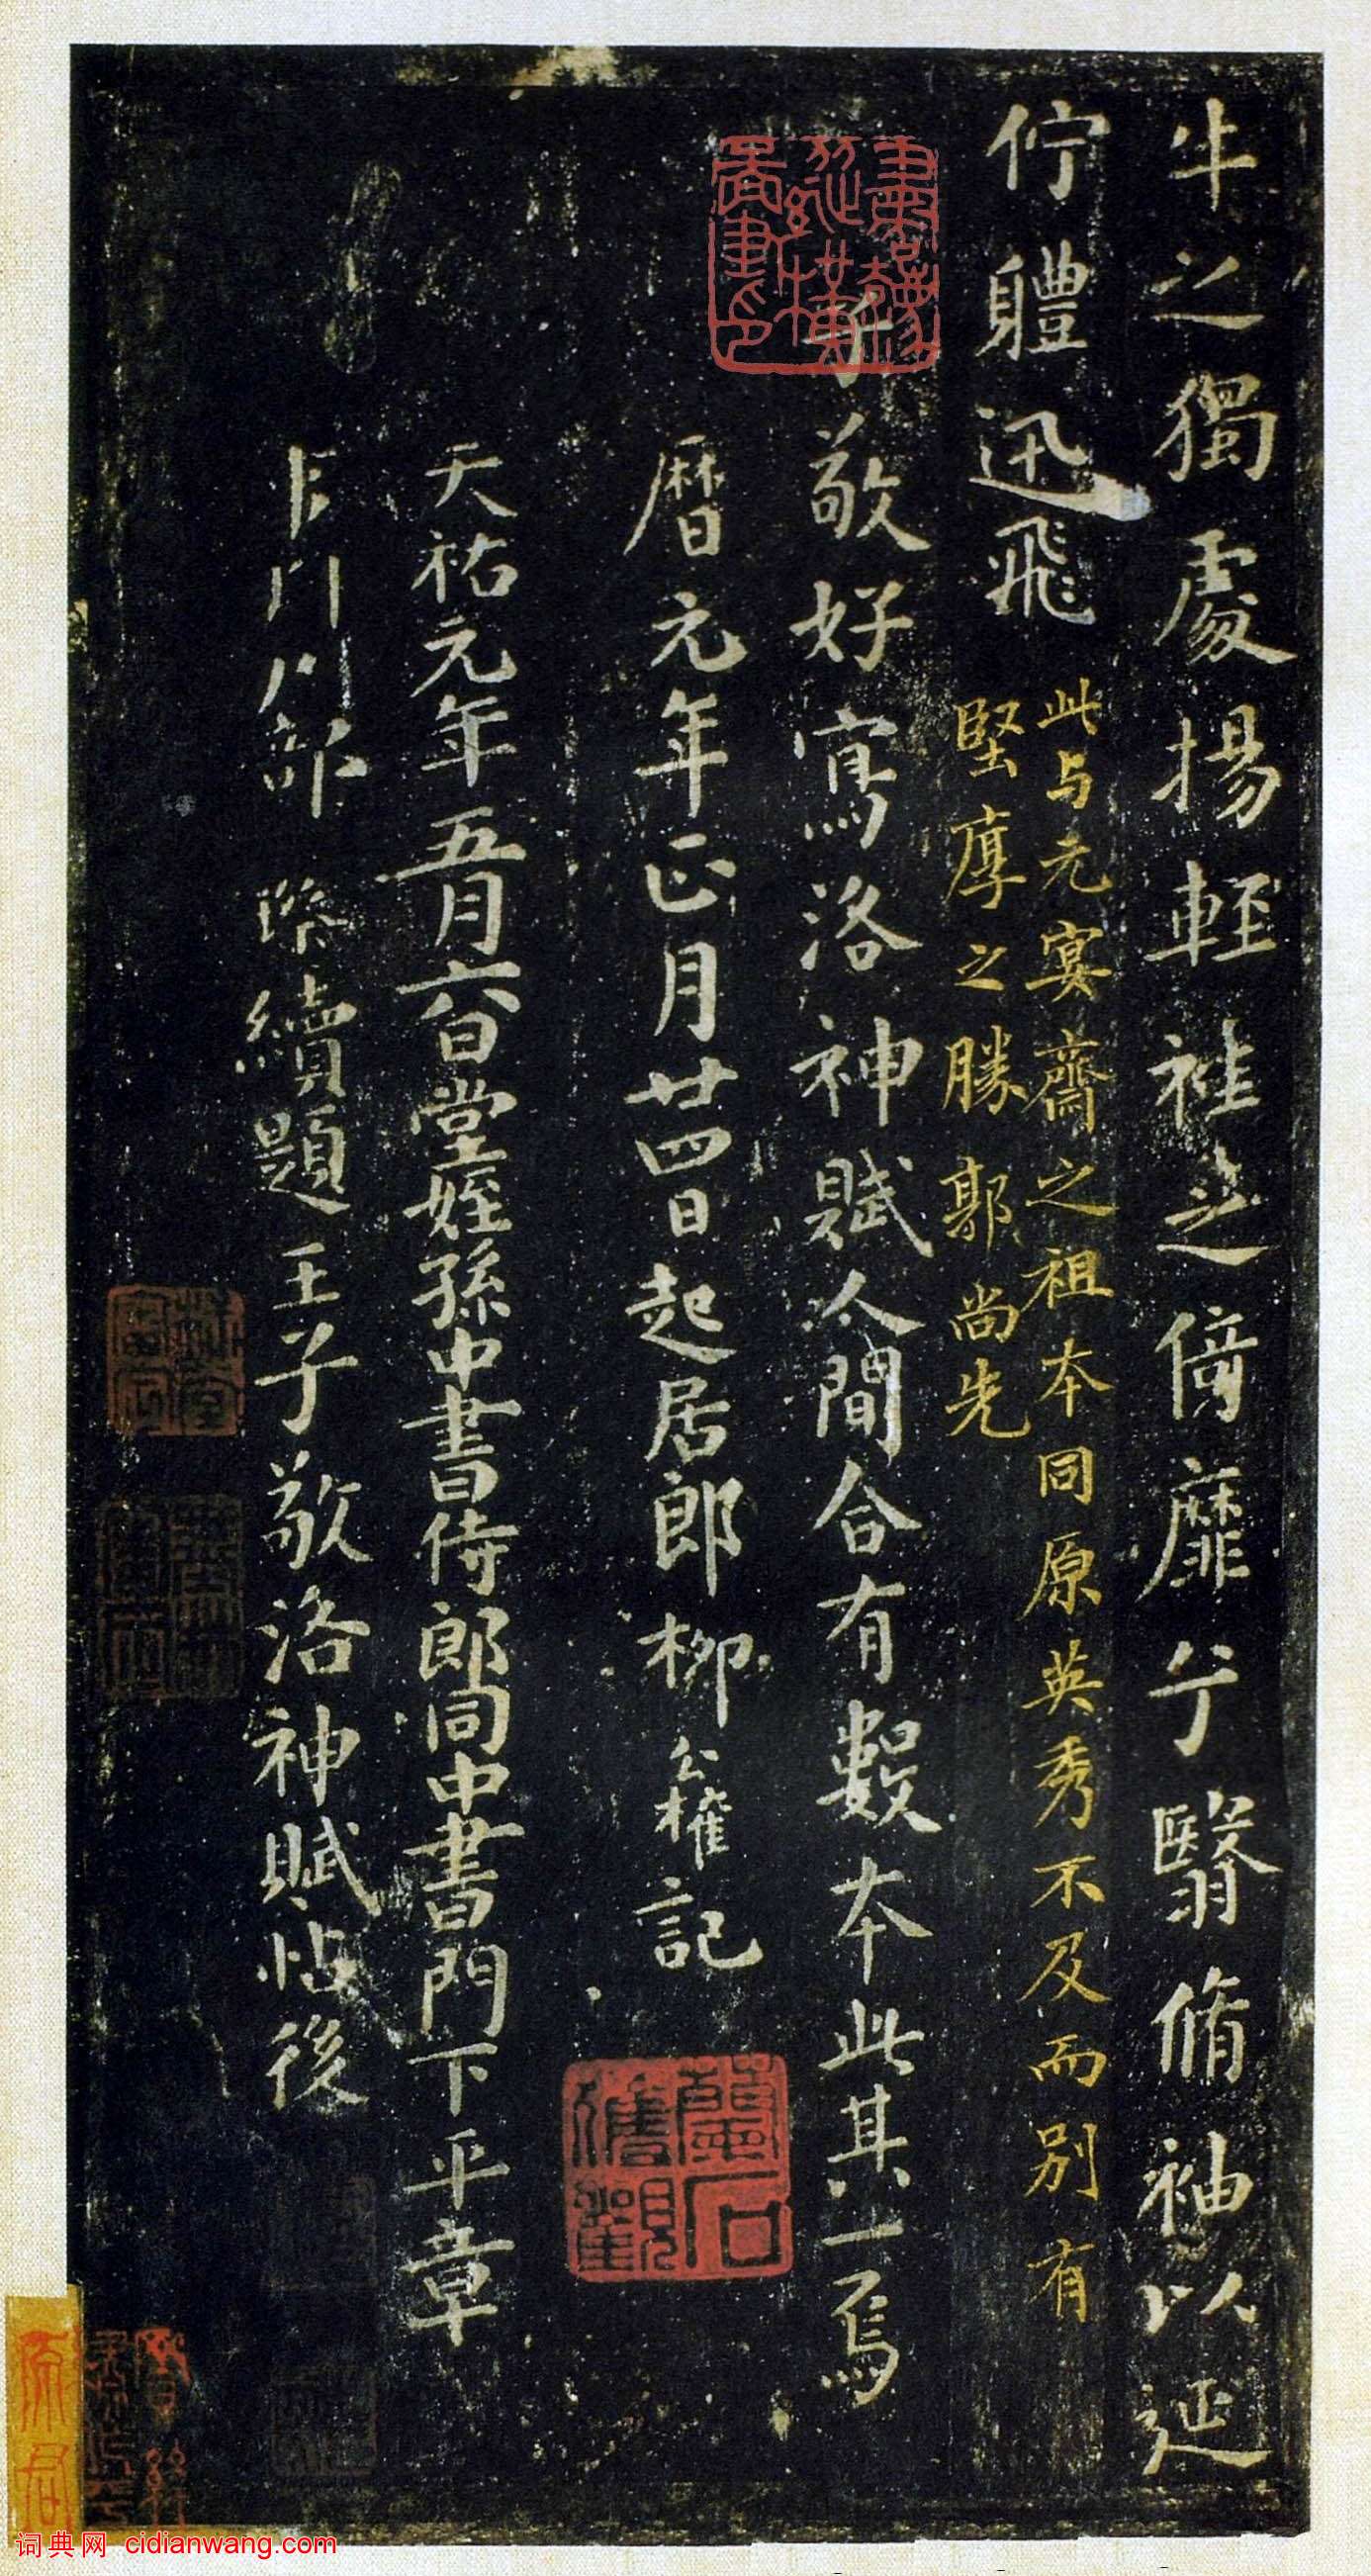 牛之獨處揚輕袿之倚靡兮翳脩袖以延
佇軆迅飛
此与元宴齋之祖本同原英秀不及而別有
堅厚之勝 郭尚先
子敬好寫洛神賦人間合有數本此其一焉
曆元年正月廿四日起居郎柳公權記
天祐元年五月六日堂姪孫中書侍郎同中書門下平章
部 璨續題王子敬洛神賦帖後
词典网 cidianwang.com